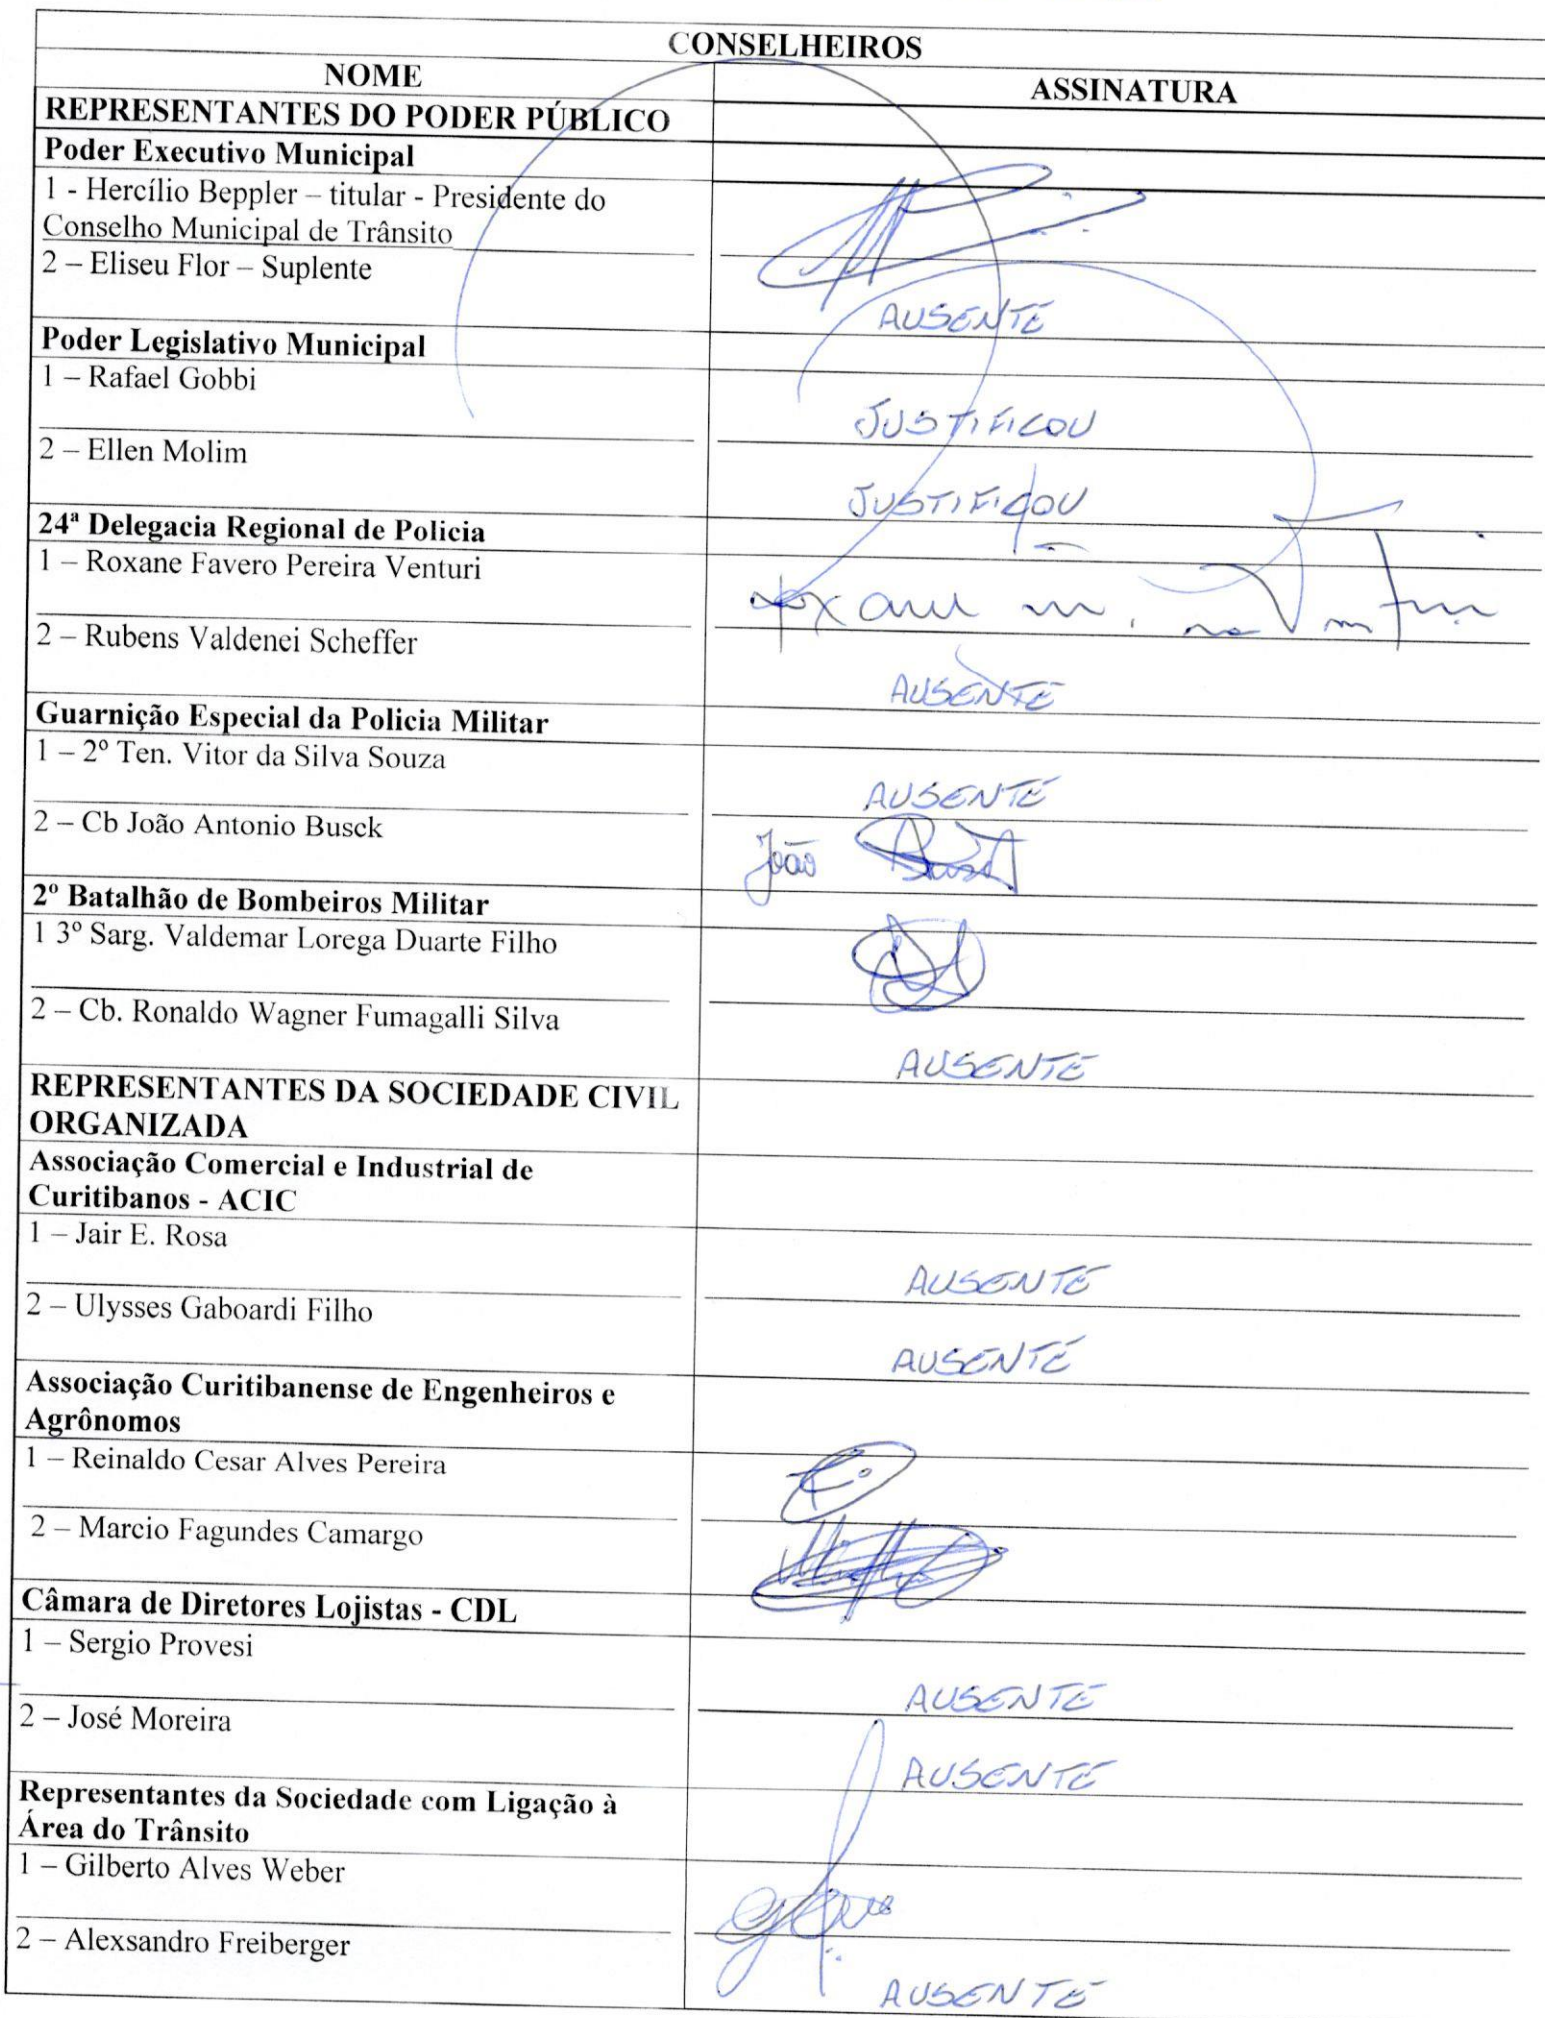 CONSELHEIROS
NOME
ASSINATURA
REPRESENTANTES DO PODER PÚBLICO
Poder Executivo Municipal
1 - Hercílio Beppler – titular - Presidente do
Conselho Municipal de Trânsito
2 – Eliseu Flor – Suplente
AUSENTE
Poder Legislativo Municipal
1 – Rafael Gobbi
JUSTIFICOU
2 – Ellen Molim
JUSTIFICOU
24ª Delegacia Regional de Policia
1 – Roxane Favero Pereira Venturi
2 – Rubens Valdenei Scheffer
AUSENTE
Guarnição Especial da Policia Militar
1 – 2º Ten. Vitor da Silva Souza
AUSENTE
2 – Cb João Antonio Busck
João
2º Batalhão de Bombeiros Militar
1 3º Sarg. Valdemar Lorega Duarte Filho
2 – Cb. Ronaldo Wagner Fumagalli Silva
AUSENTE
REPRESENTANTES DA SOCIEDADE CIVIL
ORGANIZADA
Associação Comercial e Industrial de
Curitibanos - ACIC
1 – Jair E. Rosa
AUSENTE
2 – Ulysses Gaboardi Filho
AUSENTE
Associação Curitibanense de Engenheiros e
Agrônomos
1 – Reinaldo Cesar Alves Pereira
2 – Marcio Fagundes Camargo
Câmara de Diretores Lojistas - CDL
1 – Sergio Provesi
AUSENTE
2 – José Moreira
AUSENTE
Representantes da Sociedade com Ligação à
Área do Trânsito
1 – Gilberto Alves Weber
2 – Alexsandro Freiberger
AUSENTE